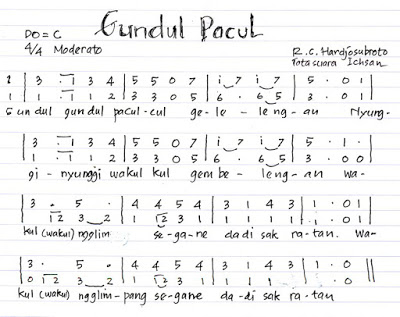 Gundul Pacul
DO = C
4/4 Moderato
R.C. Hardjosubroto
Tatasuara Ichsan
1 | 3 . 1 3 4 | 5 5 0 7 | i 7 i 7 | 5 . 0 1 |
1 | 1 . 1 1 2 | 3 3 0 5 | 6 . 6 5 | 3 . 0 1 |
Gundul gundul pacul-cul ge-le-leng-an Nyung-
| 3 . 1 3 4 | 5 5 0 7 | i 7 i 7 | 5 . 1 . |
| 1 . 1 1 2 | 3 3 0 5 | 6 . 6 5 | 3 . 0 0 |
gi-nyunggi wakul kul gembe-leng-an wa-
3 . 5 . | 4 4 5 4 | 3 1 4 3 | 1 . 0 1 |
. 1 2 3 2 | 2 2 3 1 | . . . . | . . 0 |
kul (wakul) ngglim se-ga-ne dadi sak ratan. Wa-
3 . 5 . | 4 4 5 4 | 3 1 4 3 | 1 . 0 ||
0 1 2 3 2 | 2 2 3 1 | . . . . | . . 0
kul (wakul) ngglim-pang segane da-di sak ra-tan